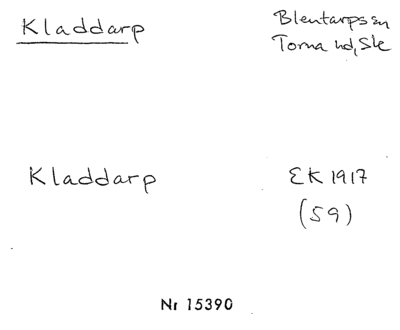 Kladdarp
Blentarps sn
Torna hd, Sk
Kladdarp
EK 1917
(59)
Nr 15390